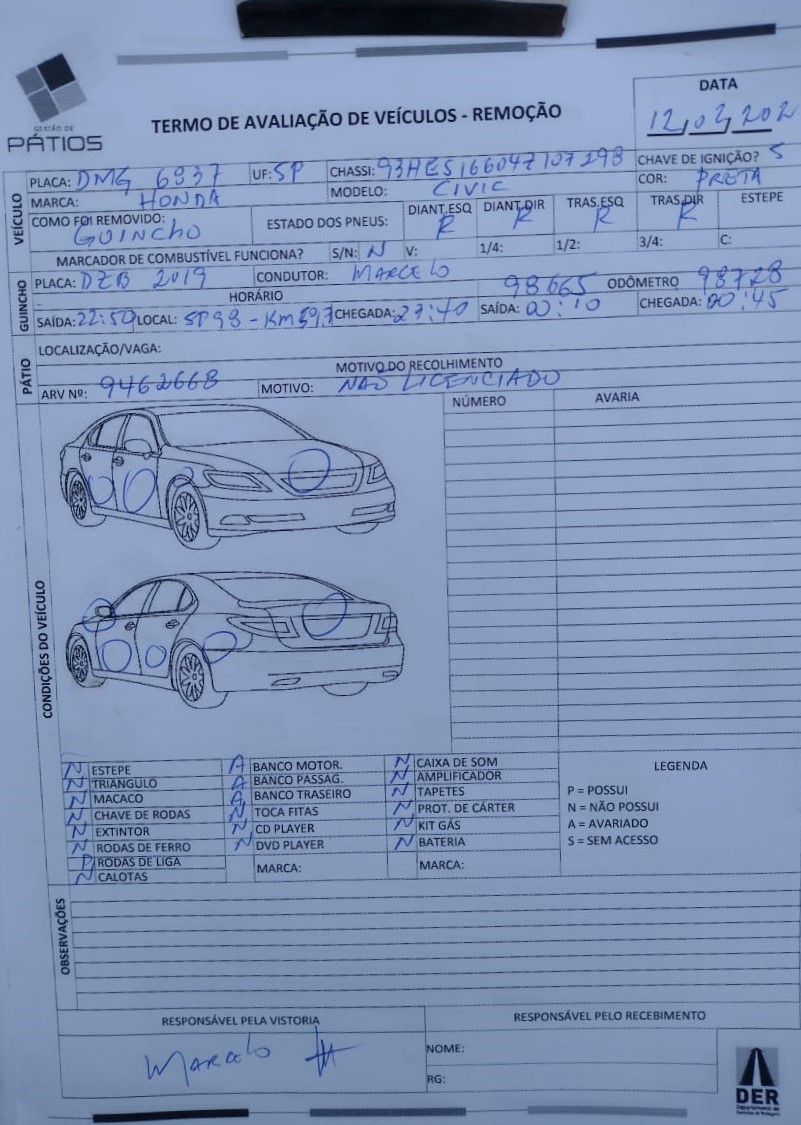 GESTÃO DE
PÁTIOS
TERMO DE AVALIAÇÃO DE VEÍCULOS - REMOÇÃO
DATA
12,02,202
VEÍCULO
PLACA: DMG 6937 UF: SP CHASSI: 93HES16604Z107298 CHAVE DE IGNIÇÃO? S
MARCA: HONDA MODELO: CIVIC COR: PRETA
COMO FOI REMOVIDO: GUINCHO ESTADO DOS PNEUS: DIANT.ESQ R DIANT.DIR R TRAS.ESQ R TRAS.DIR R ESTEPE
MARCADOR DE COMBUSTÍVEL FUNCIONA? S/N: N V: 1/4: 1/2: 3/4: C:
GUINCHO
PLACA: DZB 2019 CONDUTOR: MARCELO 98665 ODÔMETRO 98728
HORÁRIO
SAÍDA: 22:50 LOCAL: SP98 - KM CHEGADA: 23:40 SAÍDA: 00:10 CHEGADA: 00:45
PÁTIO
LOCALIZAÇÃO/VAGA:
MOTIVO DO RECOLHIMENTO
ARV Nº: 9462668 MOTIVO: NÃO LICENCIADO
CONDIÇÕES DO VEÍCULO
NÚMERO AVARIA
N ESTEPE A BANCO MOTOR. N CAIXA DE SOM
N TRIANGULO A BANCO PASSAG. N AMPLIFICADOR
N MACACO A BANCO TRASEIRO N TAPETES
N CHAVE DE RODAS N TOCA FITAS N PROT. DE CÁRTER
N EXTINTOR N CD PLAYER N KIT GÁS
N RODAS DE FERRO N DVD PLAYER N BATERIA
P RODAS DE LIGA MARCA: MARCA:
N CALOTAS
LEGENDA
P = POSSUI
N = NÃO POSSUI
A = AVARIADO
S = SEM ACESSO
OBSERVAÇÕES
RESPONSÁVEL PELA VISTORIA
Marcelo
RESPONSÁVEL PELO RECEBIMENTO
NOME:
RG:
DER
Departamento de
Estradas de Rodagem